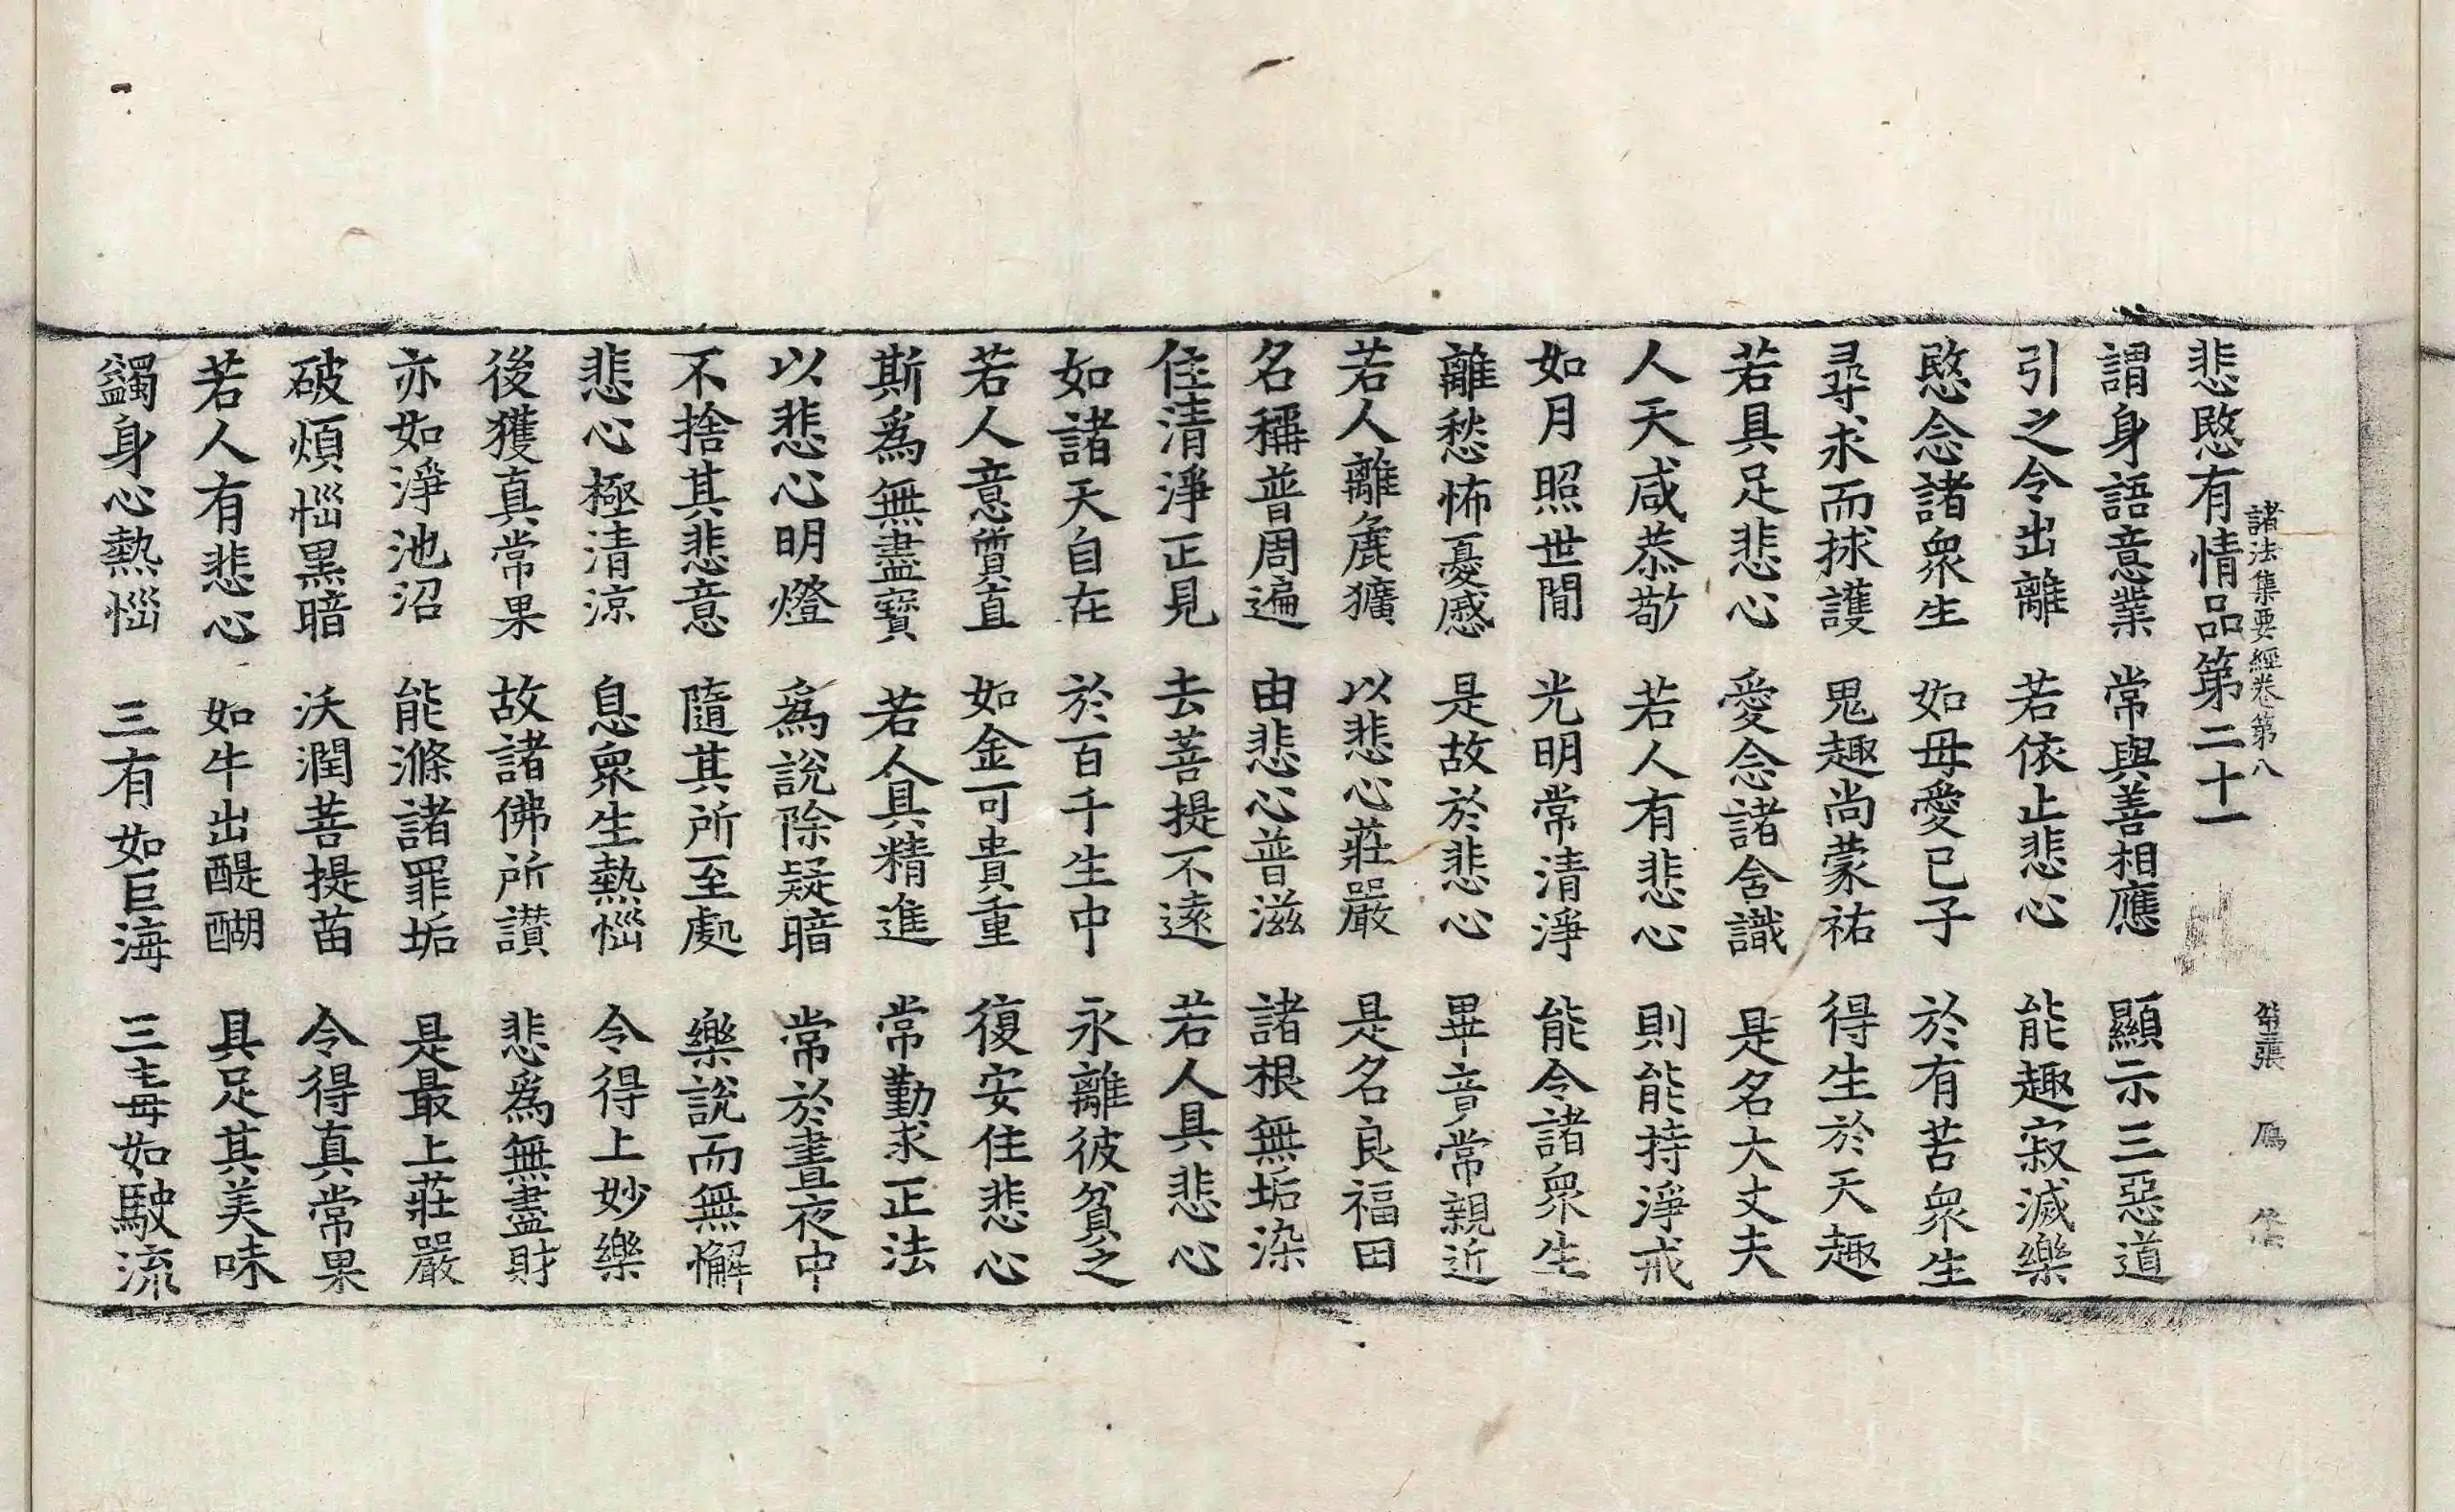 諸法集要經卷第八 第二張 鴈
悲愍有情品第二十一
謂身語意業 常與善相應 顯示三惡道
引之令出離 若依止悲心 能趣寂滅樂
愍念諸衆生 如母愛己子 於有苦衆生
尋求而捄護 鬼趣尚蒙祐 得生於天趣
若具足悲心 愛念諸含識 是名大丈夫
人天咸恭敬 若人有悲心 則能持淨戒
如月照世間 光明常清淨 能令諸衆生
離愁怖憂慼 是故於悲心 畢竟常親近
若人離麁獷 以悲心莊嚴 是名良福田
名稱普周遍 由悲心普滋 諸根無垢染
住清淨正見 去菩提不遠 若人具悲心
如諸天自在 於百千生中 永離彼貧乏
若人意質直 如金可貴重 復安住悲心
斯爲無盡寶 若人具精進 常勤求正法
以悲心明燈 爲說除疑暗 常於晝夜中
不捨其悲意 隨其所至處 樂說而無懈
悲心極清涼 息衆生熱惱 令得上妙樂
後獲真常果 故諸佛所讃 悲爲無盡財
亦如淨池沼 能滌諸罪垢 是最上莊嚴
破煩惱黑暗 沃潤菩提苗 令得真常果
若人有悲心 如牛出醍醐 具足其美味
蠲身心熱惱 三有如巨海 三毒如駛流